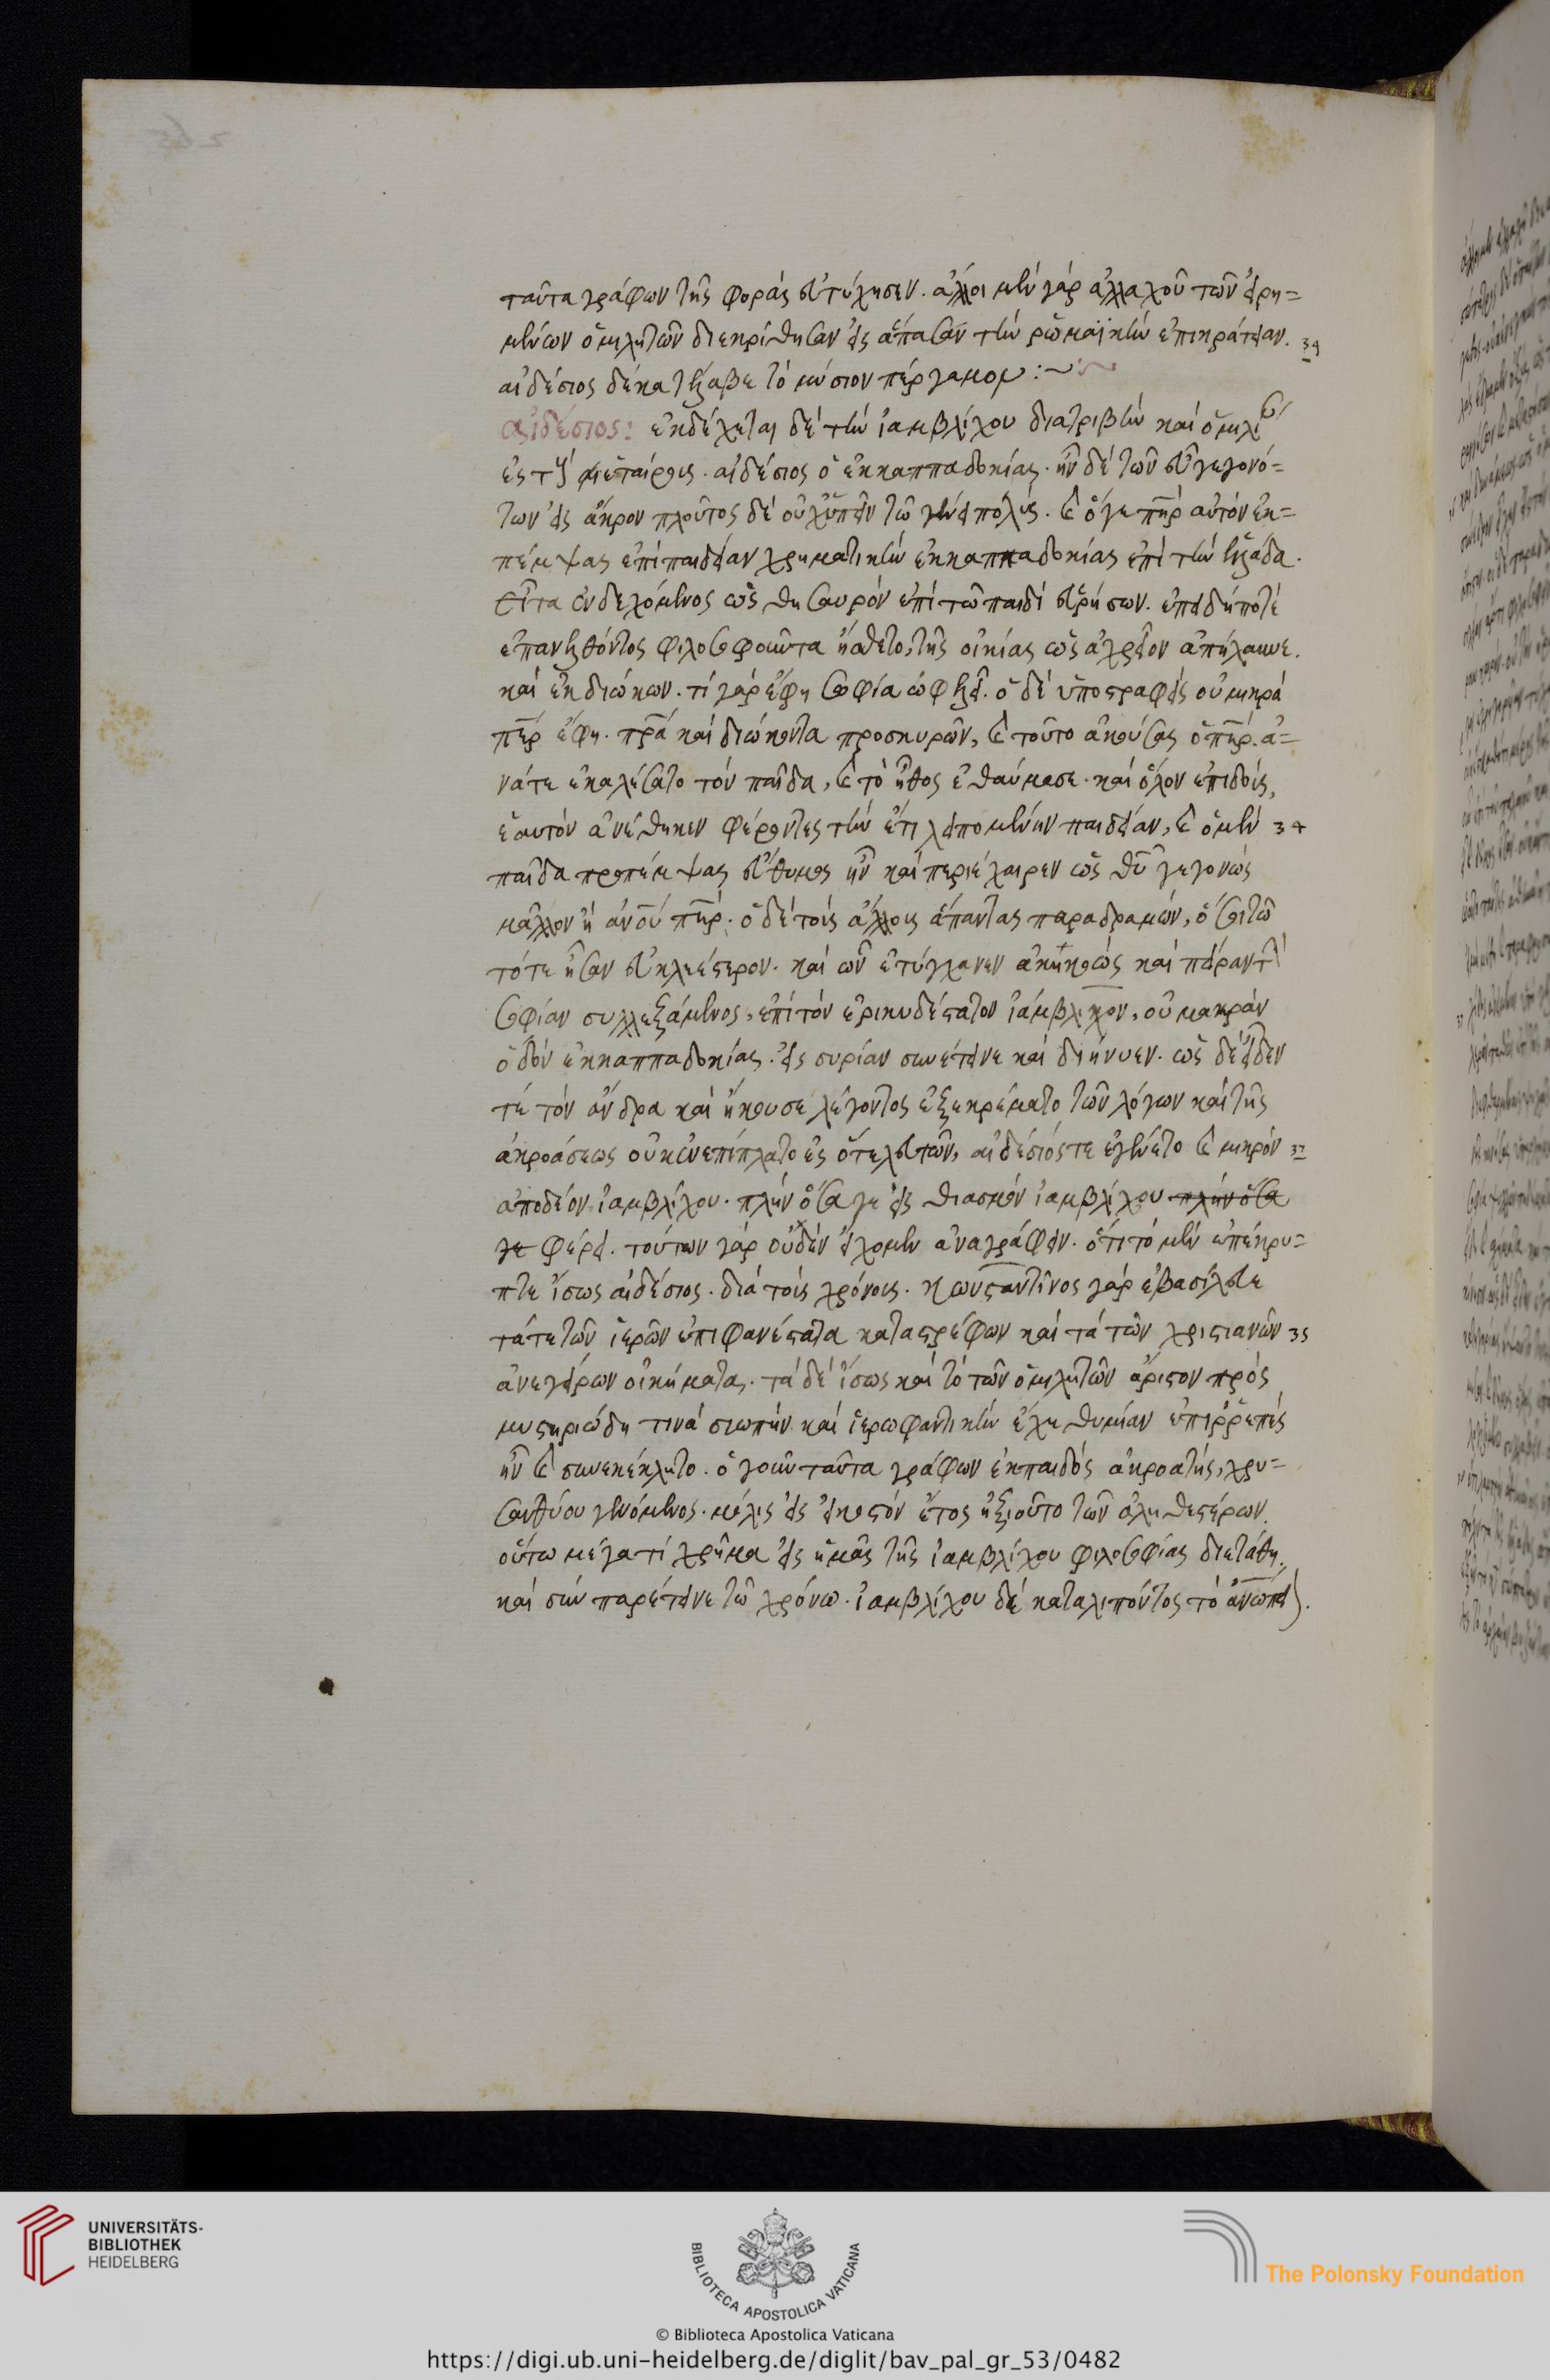 ταῦτα γράφων τῆς φορᾶς εὐτύχησεν. ἄλλοι μὲν γὰρ ἀλλαχοῦ τῶν εἰρη=
μένων ὁμιλητῶν διεκρίθησαν εἰς ἅπασαν τὴν ῥωμαϊκὴν ἐπικράτειαν. 34
αἰδέσιος δὲ κατέλαβε τὸ μύσιον πέργαμον :~
αἰδέσιος: ἐκδέχεται δὲ τὴν ἰαμβλίχου διατριβὴν καὶ ὁμιλί
ἐς τοὺς ἑταίρους. αἰδέσιος ὁ ἐκ καππαδοκίας. ἦν δὲ τῶν εὖ γεγονό=
των εἰς ἄκρον πλοῦτος δὲ οὐχ ὑπῆν τῷ γένει πολύς. καὶ ὅγε πηρ αὐτὸν ἐκ=
πέμψας ἐπὶ παιδείαν χρηματικὴν ἐκ καππαδοκίας ἐπὶ τὴν ἑλλάδα.
εἶτα ἐνδεχόμενος ὡς θησαυρὸν ἐπὶ τῷ παιδὶ εὑρήσων. ἐπειδή ποτὲ
ἐπανελθόντος φιλοσοφοῦντα ᾔσθετο, τῆς οἰκίας ὡς ἀχρεῖον ἀπήλαυνε.
καὶ ἐκδιώκων. τί γὰρ ἔφη σοφία ὠφελεῖ. ὁ δὲ ὑποστραφεὶς οὐ μικρὰ
πηρ ἔφη. πρα καὶ διώκοντα προσκυρῶν, καὶ τοῦτο ἀκούσας ὁ πηρ. ἀ=
νάτε ἐκαλέσατο τὸν παῖδα, καὶ τὸ ἦθος ἐθαύμασε. καὶ ὅλον ἐπιδοὺς,
ἑαυτὸν ἀνέθηκεν φέροντες τὴν ἔτι λειπομένην παιδείαν, καὶ ὁ μὲν 34
παῖδα προπέμψας εὔθυμος ἦν καὶ περιέχαιρεν ὡς θυ γεγονὼς
μᾶλλον ἢ ανου πηρ. ὁ δὲ τοὺς ἄλλους ἅπαντας παραδραμών, ὅσοι τῶ
τότε ἦσαν εὐκλεέστερον. καὶ ὧν ἐτύγχανεν ἀκηκοὼς καὶ πείραντ
σοφίαν συλλεξάμενος, ἐπὶ τὸν ἐρικυδέστατον ἰάμβλικον, οὐ μακρὰν
ὁδὸν ἐκ καππαδοκίας. εἰς συρίαν συνέτεινε καὶ διήνυεν. ὡς δὲ εἶδεν
τὲ τὸν ἄνδρα καὶ ἤκουσε λέγοντος ἐξεκρέματο τῶν λόγων καὶ τῆς
ἀκροάσεως οὐκ ἐνεπίπλατο ἐς ὃ τελευτῶν, αἰδέσιός τε ἐγένετο καὶ μικρὸν 37
ἀποδέον ἰαμβλίχου. πλὴν ὅσα γε εἰς θιασμὸν ἰαμβλίχου πλὴν ὅσα
γε φέρει. τούτων γὰρ οὐδὲν εἴχομεν ἀναγράφειν. ὅτι τὸ μὲν ἐπέκρυ=
πτε ἴσως αἰδέσιος. διὰ τοὺς χρόνους. κωνσταντῖνος γὰρ ἐβασίλευε
τά τε τῶν ἱερῶν ἐπιφανέστατα καταστρέφων καὶ τὰ τῶν χριστιανῶν 35
ἀνεγείρων οἰκήματα. τὰ δὲ ἴσως καὶ τὸ τῶν ὁμιλητῶν ἄριστον πρὸς
μυστηριώδη τινὰ σιωπὴν καὶ ἱεροφαντικὴν ἐχεθυμίαν ἐπιρρεπὲς
ἦν καὶ συνεκέκλητο. ὁ γοῦν ταῦτα γράφων ἐκ παιδὸς ἀκροατὴς, χρυ=
σανθίου γενόμενος. μόλις εἰς εἰκοστὸν ἔτος ἠξιοῦτο τῶν ἀληθεστέρων.
οὕτω μέγα τὶ χρῆμα εἰς ἡμᾶς τῆς ἰαμβλίχου φιλοσοφίας διετάθη.
καὶ σὺν παρέτεινε τῷ χρόνω. ἰαμβλίχου δὲ καταλιπόντος τὸ
UNIVERSITÄTS-
BIBLIOTHEK
HEIDELBERG
BIBLIOTECA APOSTOLICA VATICANA
The Polonsky Foundation
© Biblioteca Apostolica Vaticana
https://digi.ub.uni-heidelberg.de/diglit/bav_pal_gr_53/0482